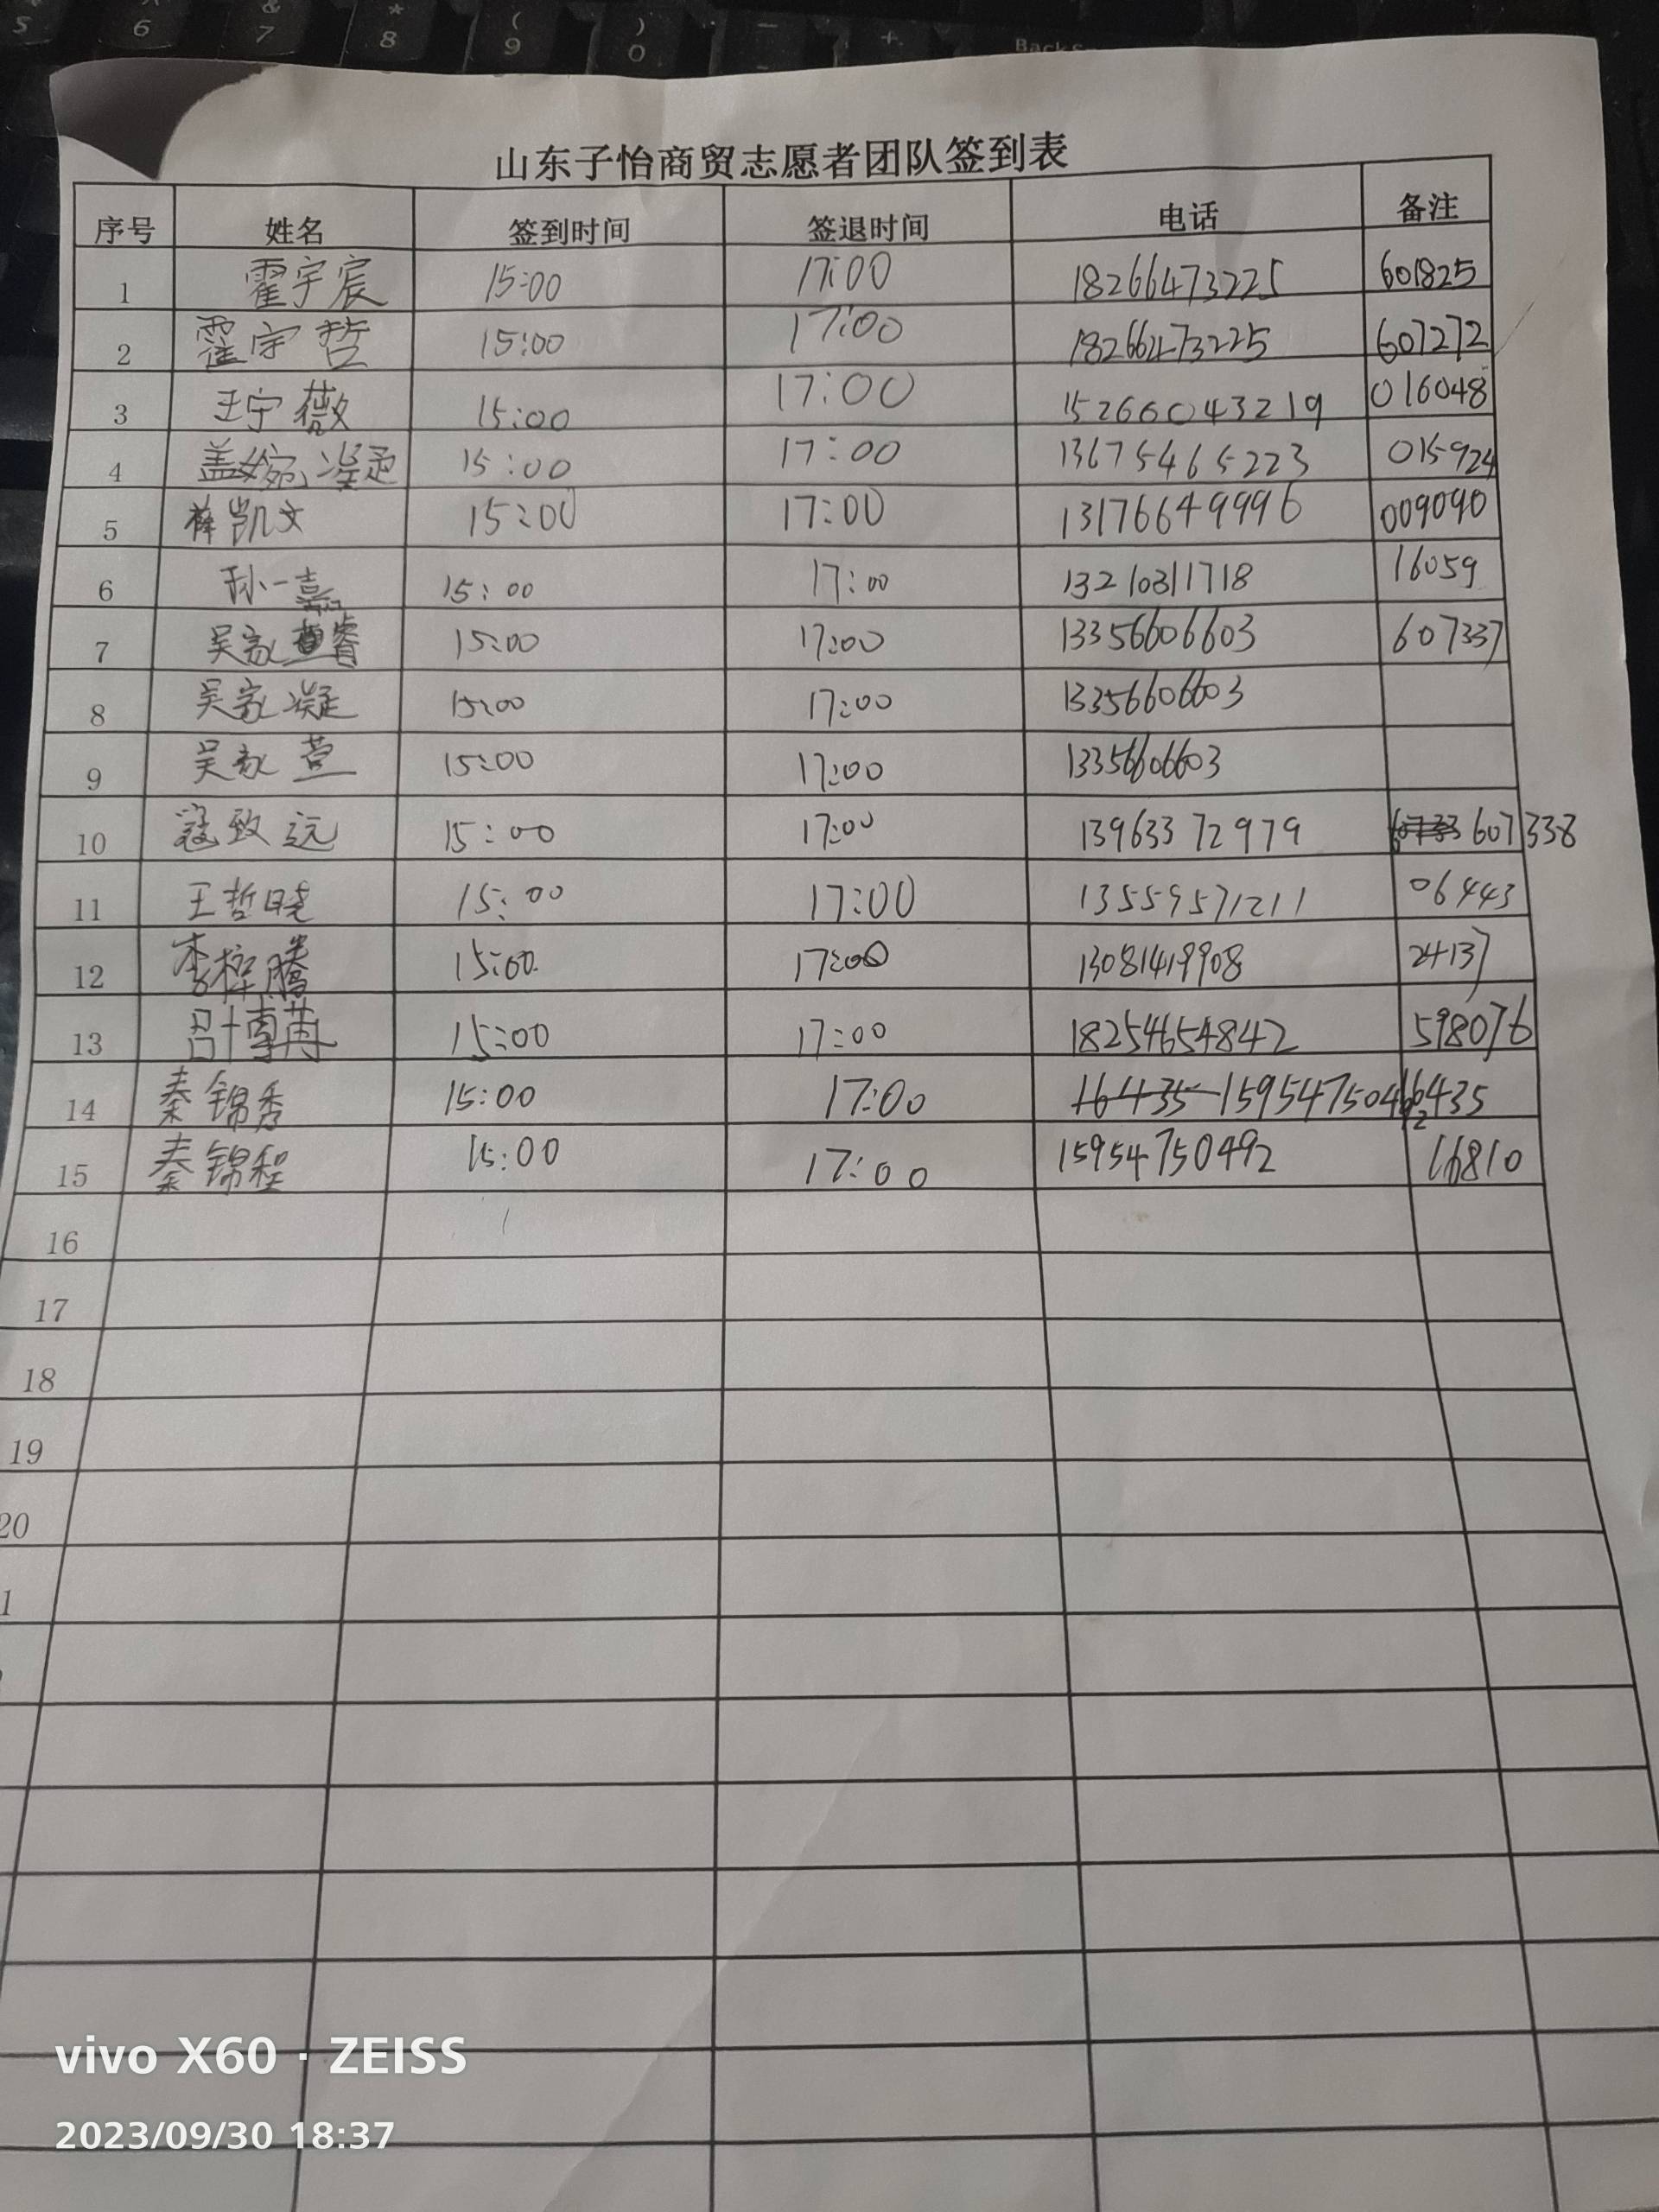 山东子怡商贸志愿者团队签到表
序号 姓名 签到时间 签退时间 电话 备注
1 霍宇宸 15:00 17:00 18266473225 601825
2 霍宇哲 15:00 17:00 18266473225 607272
3 王宁薇 15:00 17:00 15266043219 016048
4 盖婉凝 15:00 17:00 13675465223 015924
5 薛凯文 15:00 17:00 13176649996 009090
6 孙一嘉 15:00 17:00 13210311718 16059
7 吴家睿 15:00 17:00 13356606603 607337
8 吴家凝 15:00 17:00 13356606603
9 吴家萱 15:00 17:00 13356606603
10 寇致远 15:00 17:00 13963372979 607338
11 王哲晓 15:00 17:00 13559571211 06443
12 李梓腾 15:00 17:00 13081419908 24137
13 吕博苒 15:00 17:00 18254654842 598076
14 秦锦秀 15:00 17:00 16435 15954750492 16435
15 秦锦程 15:00 17:00 15954750492 16810
16
17
18
19
20
vivo X60 · ZEISS
2023/09/30 18:37